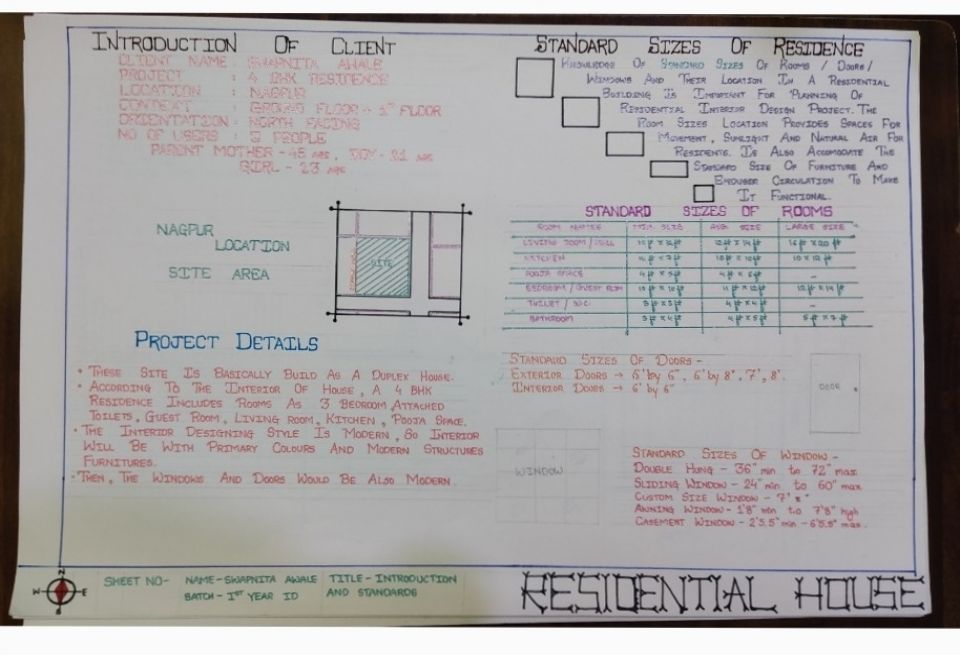 INTRODUCTION OF CLIENT
CLIENT NAME : SWAPNITA AWALE
PROJECT : 4 BHK RESIDENCE
LOCATION : NAGPUR
CONCEPT : GROUND FLOOR + 1ST FLOOR
ORIENTATION : NORTH FACING
NO OF USERS : 3 PEOPLE
PARENT MOTHER - 45 AGE, BOY - 21 AGE
GIRL - 23 AGE
NAGPUR
LOCATION
SITE AREA
SITE
PROJECT DETAILS
• THESE SITE IS BASICALLY BUILD AS A DUPLEX HOUSE.
• ACCORDING TO THE INTERIOR OF HOUSE, A 4 BHK
RESIDENCE INCLUDES ROOMS AS 3 BEDROOM, ATTACHED
TOILETS, GUEST ROOM, LIVING ROOM, KITCHEN, POOJA SPACE.
• THE INTERIOR DESIGNING STYLE IS MODERN, SO INTERIOR
WILL BE WITH PRIMARY COLOURS AND MODERN STRUCTURES
FURNITURES.
• THEN, THE WINDOWS AND DOORS WOULD BE ALSO MODERN.
STANDARD SIZES OF RESIDENCE
KNOWLEDGE OF STANDARD SIZES OF ROOMS / DOORS /
WINDOWS AND THEIR LOCATION IN A RESIDENTIAL
BUILDING IS IMPORTANT FOR PLANNING OF
RESIDENTIAL INTERIOR DESIGN PROJECT. THE
ROOM SIZES LOCATION PROVIDES SPACES FOR
MOVEMENT, SUNLIGHT AND NATURAL AIR FOR
RESIDENTS. IS ALSO ACCOMODATE THE
STANDARD SIZE OF FURNITURE AND
CIRCULATION TO MAKE
IT FUNCTIONAL.
STANDARD SIZES OF ROOMS
ROOM NAMES MIN. SIZE AVG. SIZE LARGE SIZE
LIVING ROOM / HALL 12 ft x 14 ft 16 ft x 20 ft
KITCHEN 10 ft x 10 ft 10 x 12 ft
POOJA SPACE 4 ft x 5 ft 4 ft x 6 ft -
BEDROOM / GUEST ROOM 10 ft x 10 ft 11 ft x 12 ft 12 ft x 14 ft
TOILET / W.C. 3 ft x 3 ft 4 ft x 4 ft -
BATHROOM 3 ft x 4 ft 4 ft x 5 ft 5 ft x 7 ft
STANDARD SIZES OF DOORS -
EXTERIOR DOORS → 6' by 6", 6' by 8", 7', 8'.
INTERIOR DOORS → 6' by 6"
DOOR
WINDOW
STANDARD SIZES OF WINDOW -
DOUBLE HUNG - 36" min to 72" max
SLIDING WINDOW - 24" min to 60" max
CUSTOM SIZE WINDOW - 7'
AWNING WINDOW - 1'8" min to 7'8" high
CASEMENT WINDOW - 2'5.5" min - 6'5.5" max.
N
W E
S
SHEET NO-
NAME - SWAPNITA AWALE
BATCH - 1ST YEAR ID
TITLE - INTRODUCTION
AND STANDARDS
RESIDENTIAL HOUSE